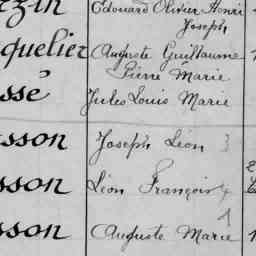 Edouard Olivier Henri
Joseph
quelier Auguste Guillaume
Pierre Marie
ssé Jules Louis Marie
sson Joseph Léon 3
sson Léon François
sson Auguste Marie